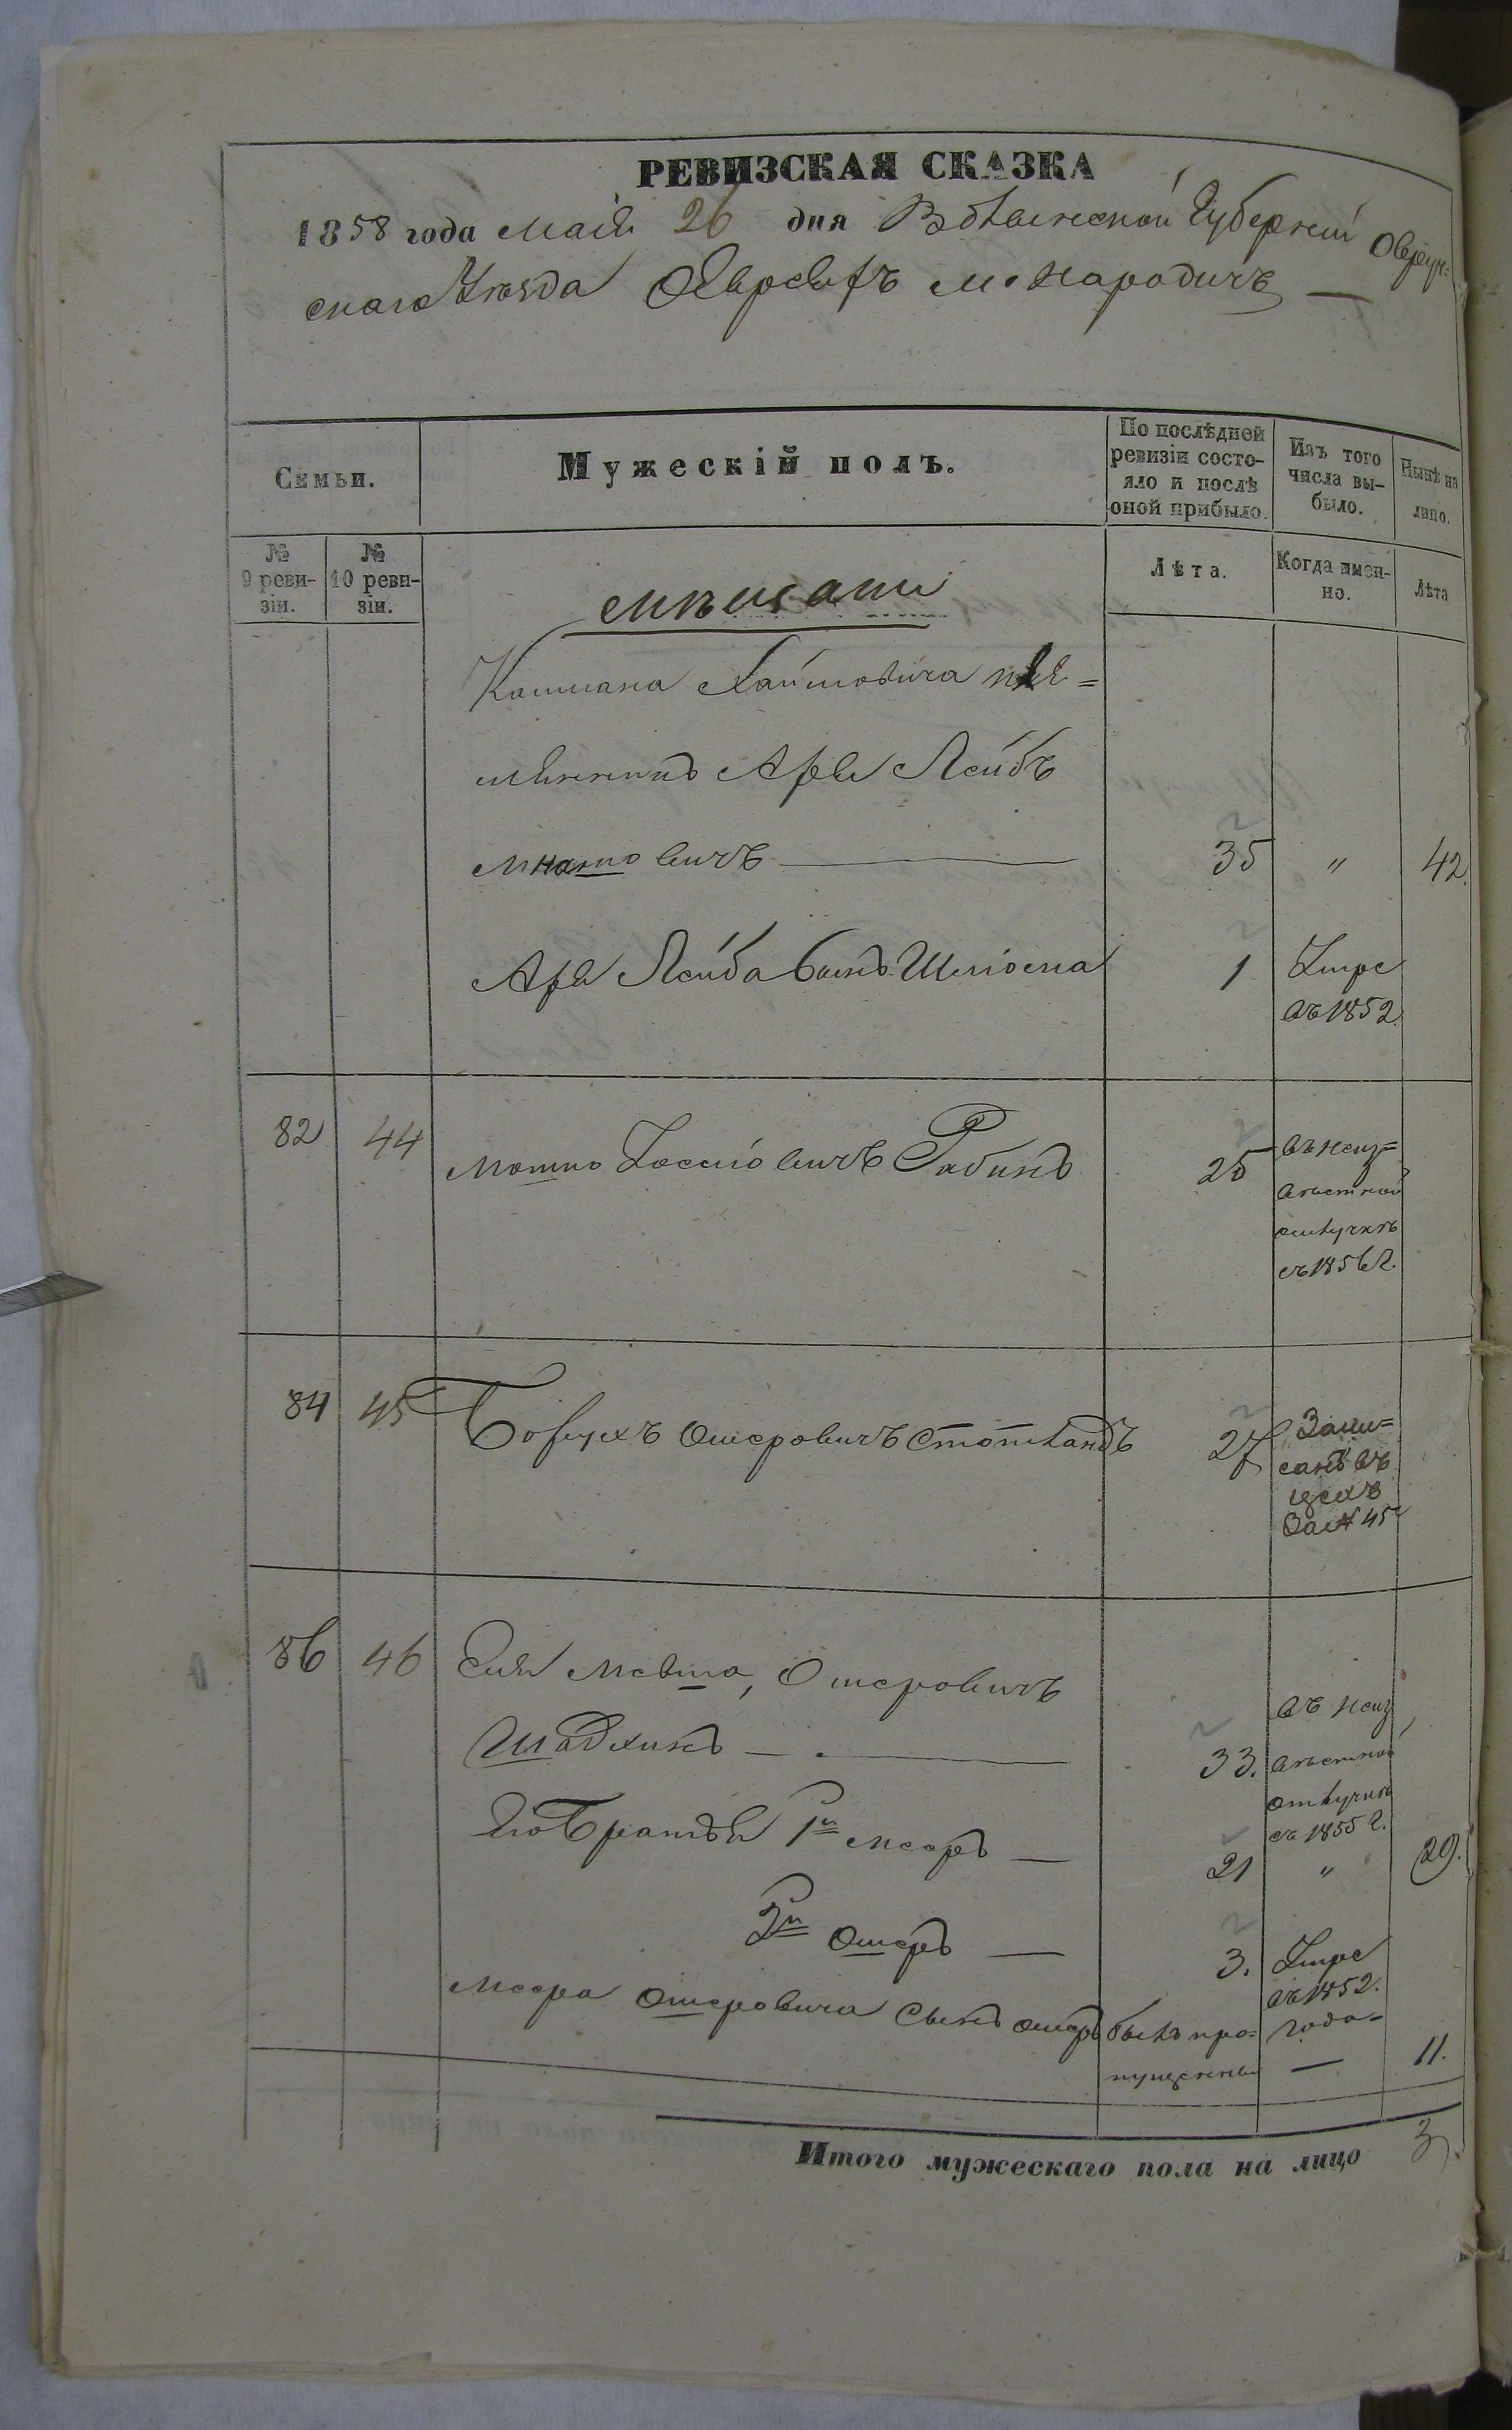 РЕВИЗСКАЯ СКАЗКА
1858 года Маія 26 дня Волынской Губерніи Овруч=
скаго Уѣзда Евреевъ м. Народичъ —
Семьи.
Мужескій полъ.
По послѣдней ревизіи состо-
яло и послѣ оной прибыло.
Изъ того числа вы-
было.
Нынѣ на лицо.
№ 9 реви-
зіи.
№ 10 реви-
зіи.
Лѣта.
Когда имен-
но.
Лѣта
Мѣщане
Хаимовича пле=
мянникъ Арія Лейбъ
35 " 42.
Арія Лейба сынъ Шліома 1 Умре
въ 1852
82 44 Мошко Іосіовичъ Рабинъ 25 въ неиз=
вѣстной
отлучкѣ
съ 1856 г.
84 45 Борухъ Ошеровичъ 27 Запи=
санъ въ
цехъ
За № 45
86 46 Ошеровичъ
въ неиз
Шадхинъ — 33. вѣстной
отлучкѣ
съ 1855 г.
Его Братья 1й Мееръ — 21 " 29.
2й Ошеръ — 3. Умре
въ 1852.
года
Меера Ошеровича Сынъ Ошеръ былъ про=
пущенный — 11.
Итого мужескаго пола на лицо 3.